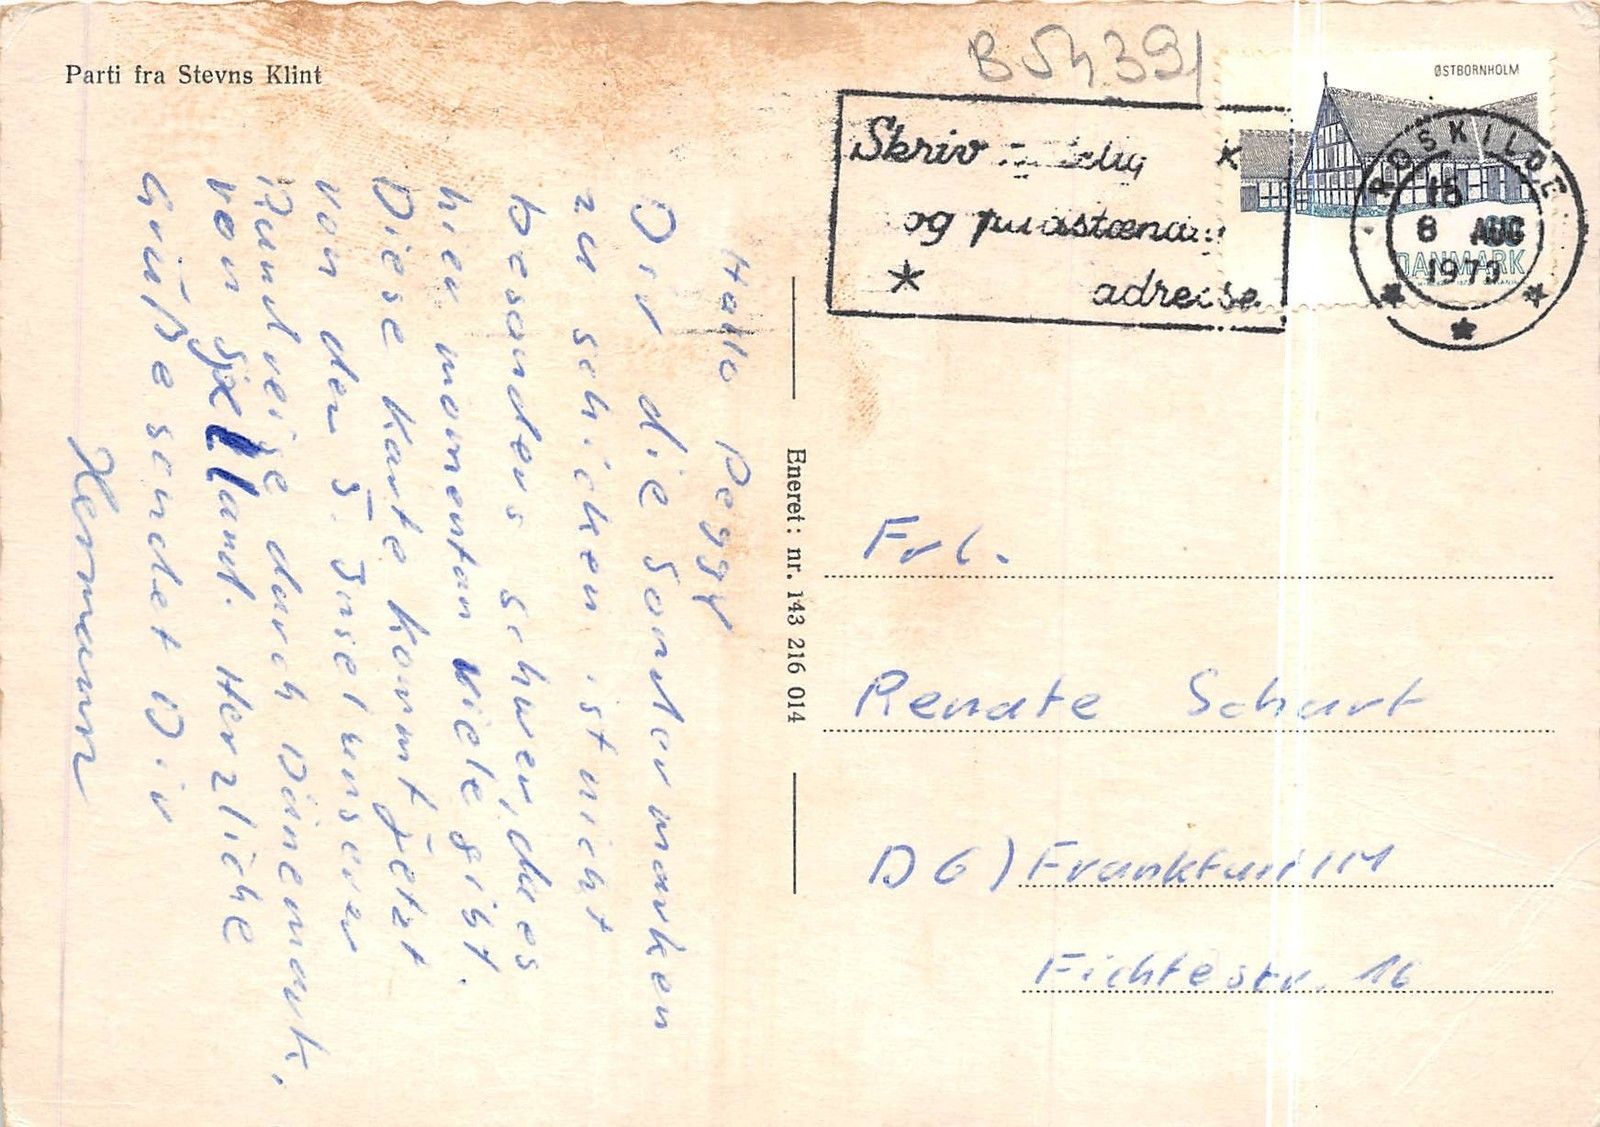 Parti fra Stevns Klint
B 54391
Skriv
og
adresse
ØSTBORNHOLM
DANMARK
ROSKILDE
8 AUG
Hallo Peggy
Dir die Sondermarken
zu schicken ist nicht
besonders schwer, da es
hier momentan viele gibt.
Diese Karte kommt jetzt
von der 5. Insel unserer
Rundreise durch Dänemark,
von Sjælland. Herzliche
Grüße sendet Dir
Hermann
Eneret: nr. 143 216 014
Frl.
Renate Schart
D 6) Frankfurt/M
Fichtestr. 16